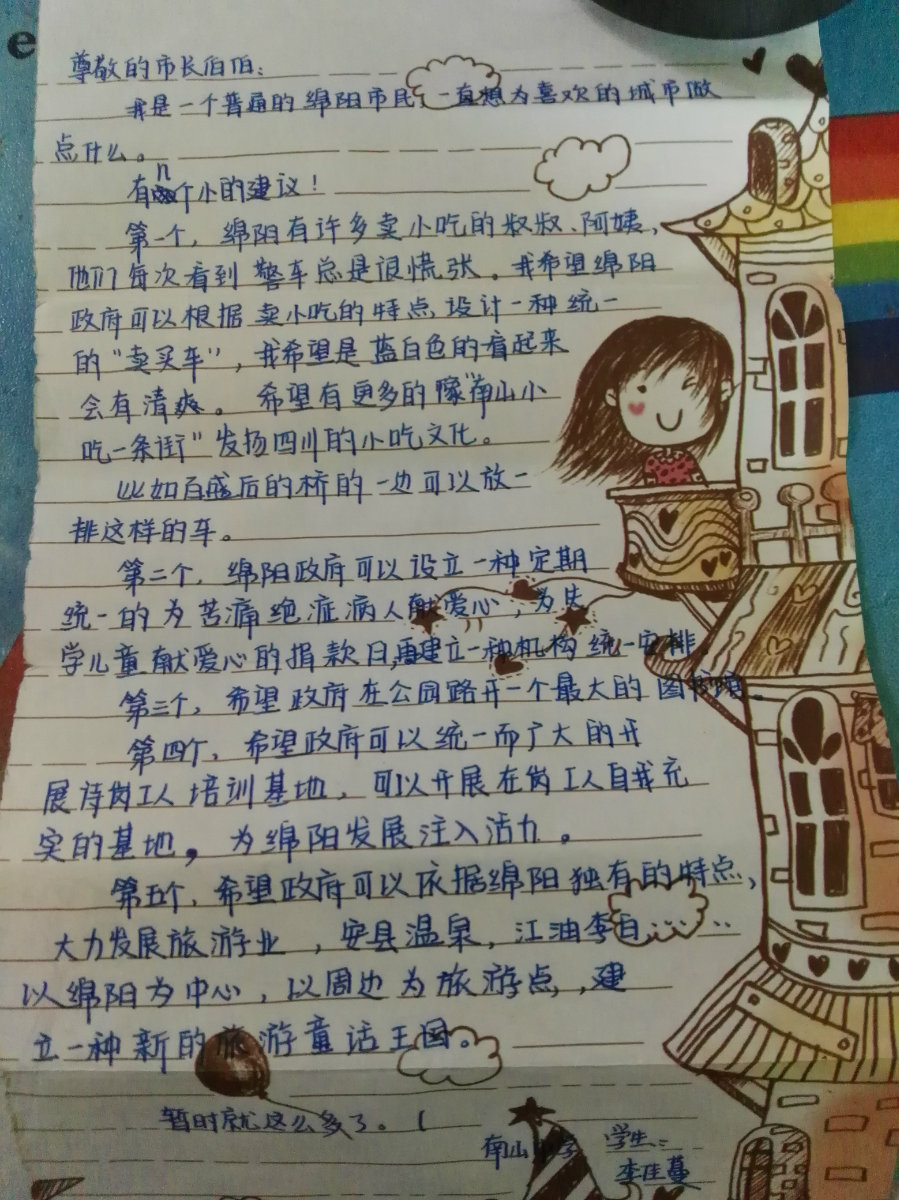 e
尊敬的市长伯伯：
我是一个普通的绵阳市民，一直想为喜欢的城市做
点什么。
有n个小的建议！
第一个，绵阳有许多卖小吃的叔叔、阿姨，
他们每次看到警车总是很慌张。我希望绵阳
政府可以根据卖小吃的特点，设计一种统一
的“卖买车”，我希望是蓝白色的看起来
会有清爽。希望有更多的像“南山小
吃一条街”发扬四川的小吃文化。
比如百盛后的桥的一边可以放一
排这样的车。
第二个，绵阳政府可以设立一种定期
统一的为苦痛绝症病人献爱心，为失
学儿童献爱心的捐款日，再建立一种机构统一安排。
第三个，希望政府在公园路开一个最大的图书馆。
第四个，希望政府可以统一而广大的开
展待岗工人培训基地，可以开展在岗工人自我充
实的基地，为绵阳发展注入活力。
第五个，希望政府可以依据绵阳独有的特点，
大力发展旅游业，安县温泉，江油李白……
以绵阳为中心，以周边为旅游点，建
立一种新的旅游童话王国。
暂时就这么多了。（
南山中学 学生：
李佳蔓